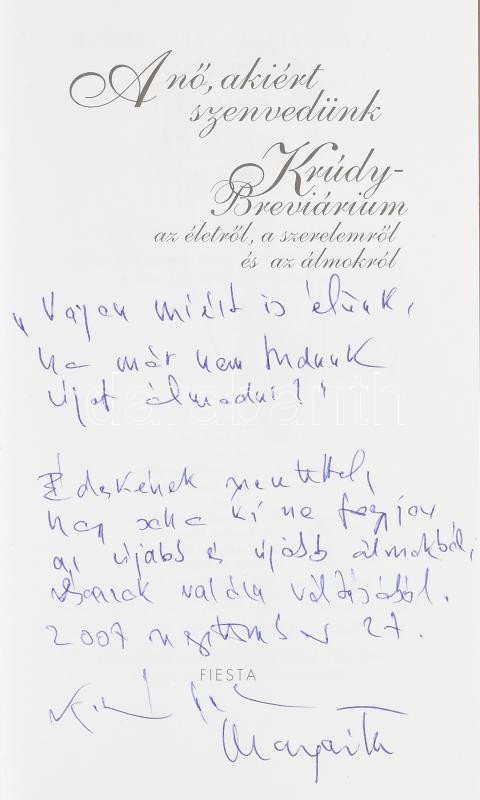 A nő, akiért
szenvedünk
Krúdy-
Breviárium
az életről, a szerelemről
és az álmokról
„Vajon miért is élünk,
ha már nem tudunk
újat álmodni?"
darabanth
Édeskének szeretettel,
hogy soha ki ne fogyjon
az újabb és újabb álmokból,
s azok valóra váltásából.
2007 szeptember 27.
FIESTA
Margaréta